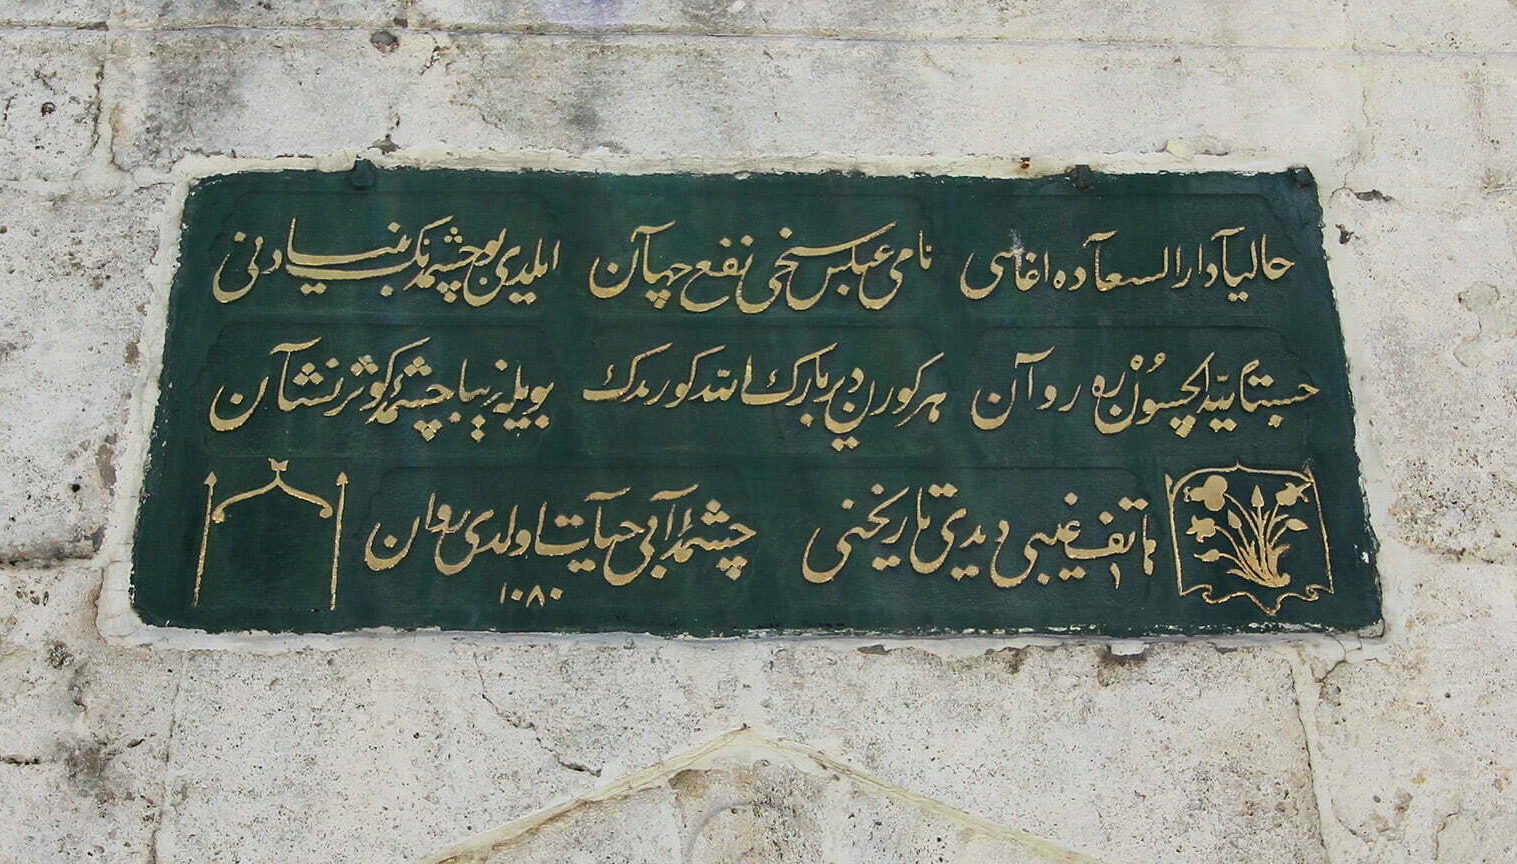 حاليا دار السعاده اغاسى نامى عباس سخى نفع جهان ايلدى بو چشمه‌نك بنيادنى
حسبتا لله ايچون ره روان هر كورن دير بارك الله كورمدك بويله زيبا چشمهٔ كوثر نشان
هاتف غيبى ديدى تاريخنى چشمه‌لر آبى حيات اولدى روان
١٠٨٠